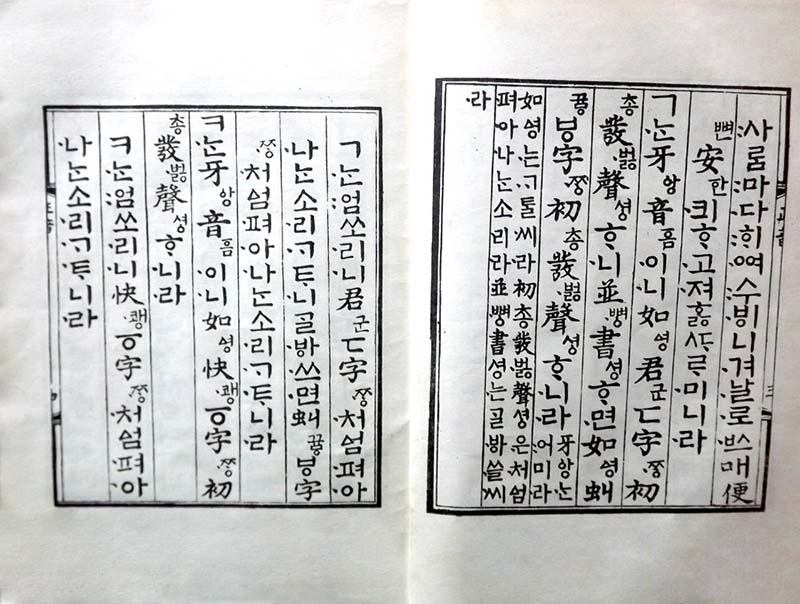 사ᄅᆞᆷ마다ᄒᆡᅇᅧ수ᄫᅵ니겨날로ᄡᅳ매便
뼌安ᅙᅡᆫ킈ᄒᆞ고져ᄒᆞᇙᄯᆞᄅᆞ미니라
ㄱᄂᆞᆫ牙ᅌᅡᆼ音ᅙᅳᆷ이니如ᅀᅧᆼ君군ㄷ字ᄍᆞᆼ初
총發벓聲셩ᄒᆞ니並뼝書셩ᄒᆞ면如ᅀᅧᆼ虯
뀨ᇢㅸ字ᄍᆞᆼ初총發벓聲셩ᄒᆞ니라牙ᅌᅡᆼᄂᆞᆫ어미라
如ᅀᅧᆼ는ᄀᆞᄐᆞᆯ씨라初총發벓聲셩은처ᅀᅥᆷ
펴아나ᄂᆞᆫ소리라並뼝書셩는ᄀᆞᆯᄫᅡ쓸씨
라
ㄱᄂᆞᆫ엄쏘리니君군ㄷ字ᄍᆞᆼ처ᅀᅥᆷ펴아
나ᄂᆞᆫ소리ᄀᆞᄐᆞ니ᄀᆞᆯᄫᅡ쓰면虯뀨ᇢㅸ字
ᄍᆞᆼ처ᅀᅥᆷ펴아나ᄂᆞᆫ소리ᄀᆞᄐᆞ니라
ㅋᄂᆞᆫ牙ᅌᅡᆼ音ᅙᅳᆷ이니如ᅀᅧᆼ快쾡ㆆ字ᄍᆞᆼ初
총發벓聲셩ᄒᆞ니라
ㅋᄂᆞᆫ엄쏘리니快쾡ㆆ字ᄍᆞᆼ처ᅀᅥᆷ펴아
나ᄂᆞᆫ소리ᄀᆞᄐᆞ니라